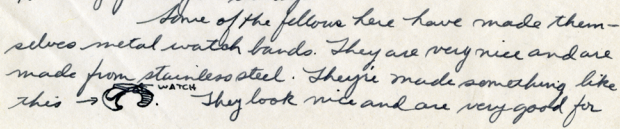 Some of the fellows here have made them-
selves metal watch bands. They are very nice and are
made from stainless steel. They're made something like
this → WATCH. They look nice and are very good for